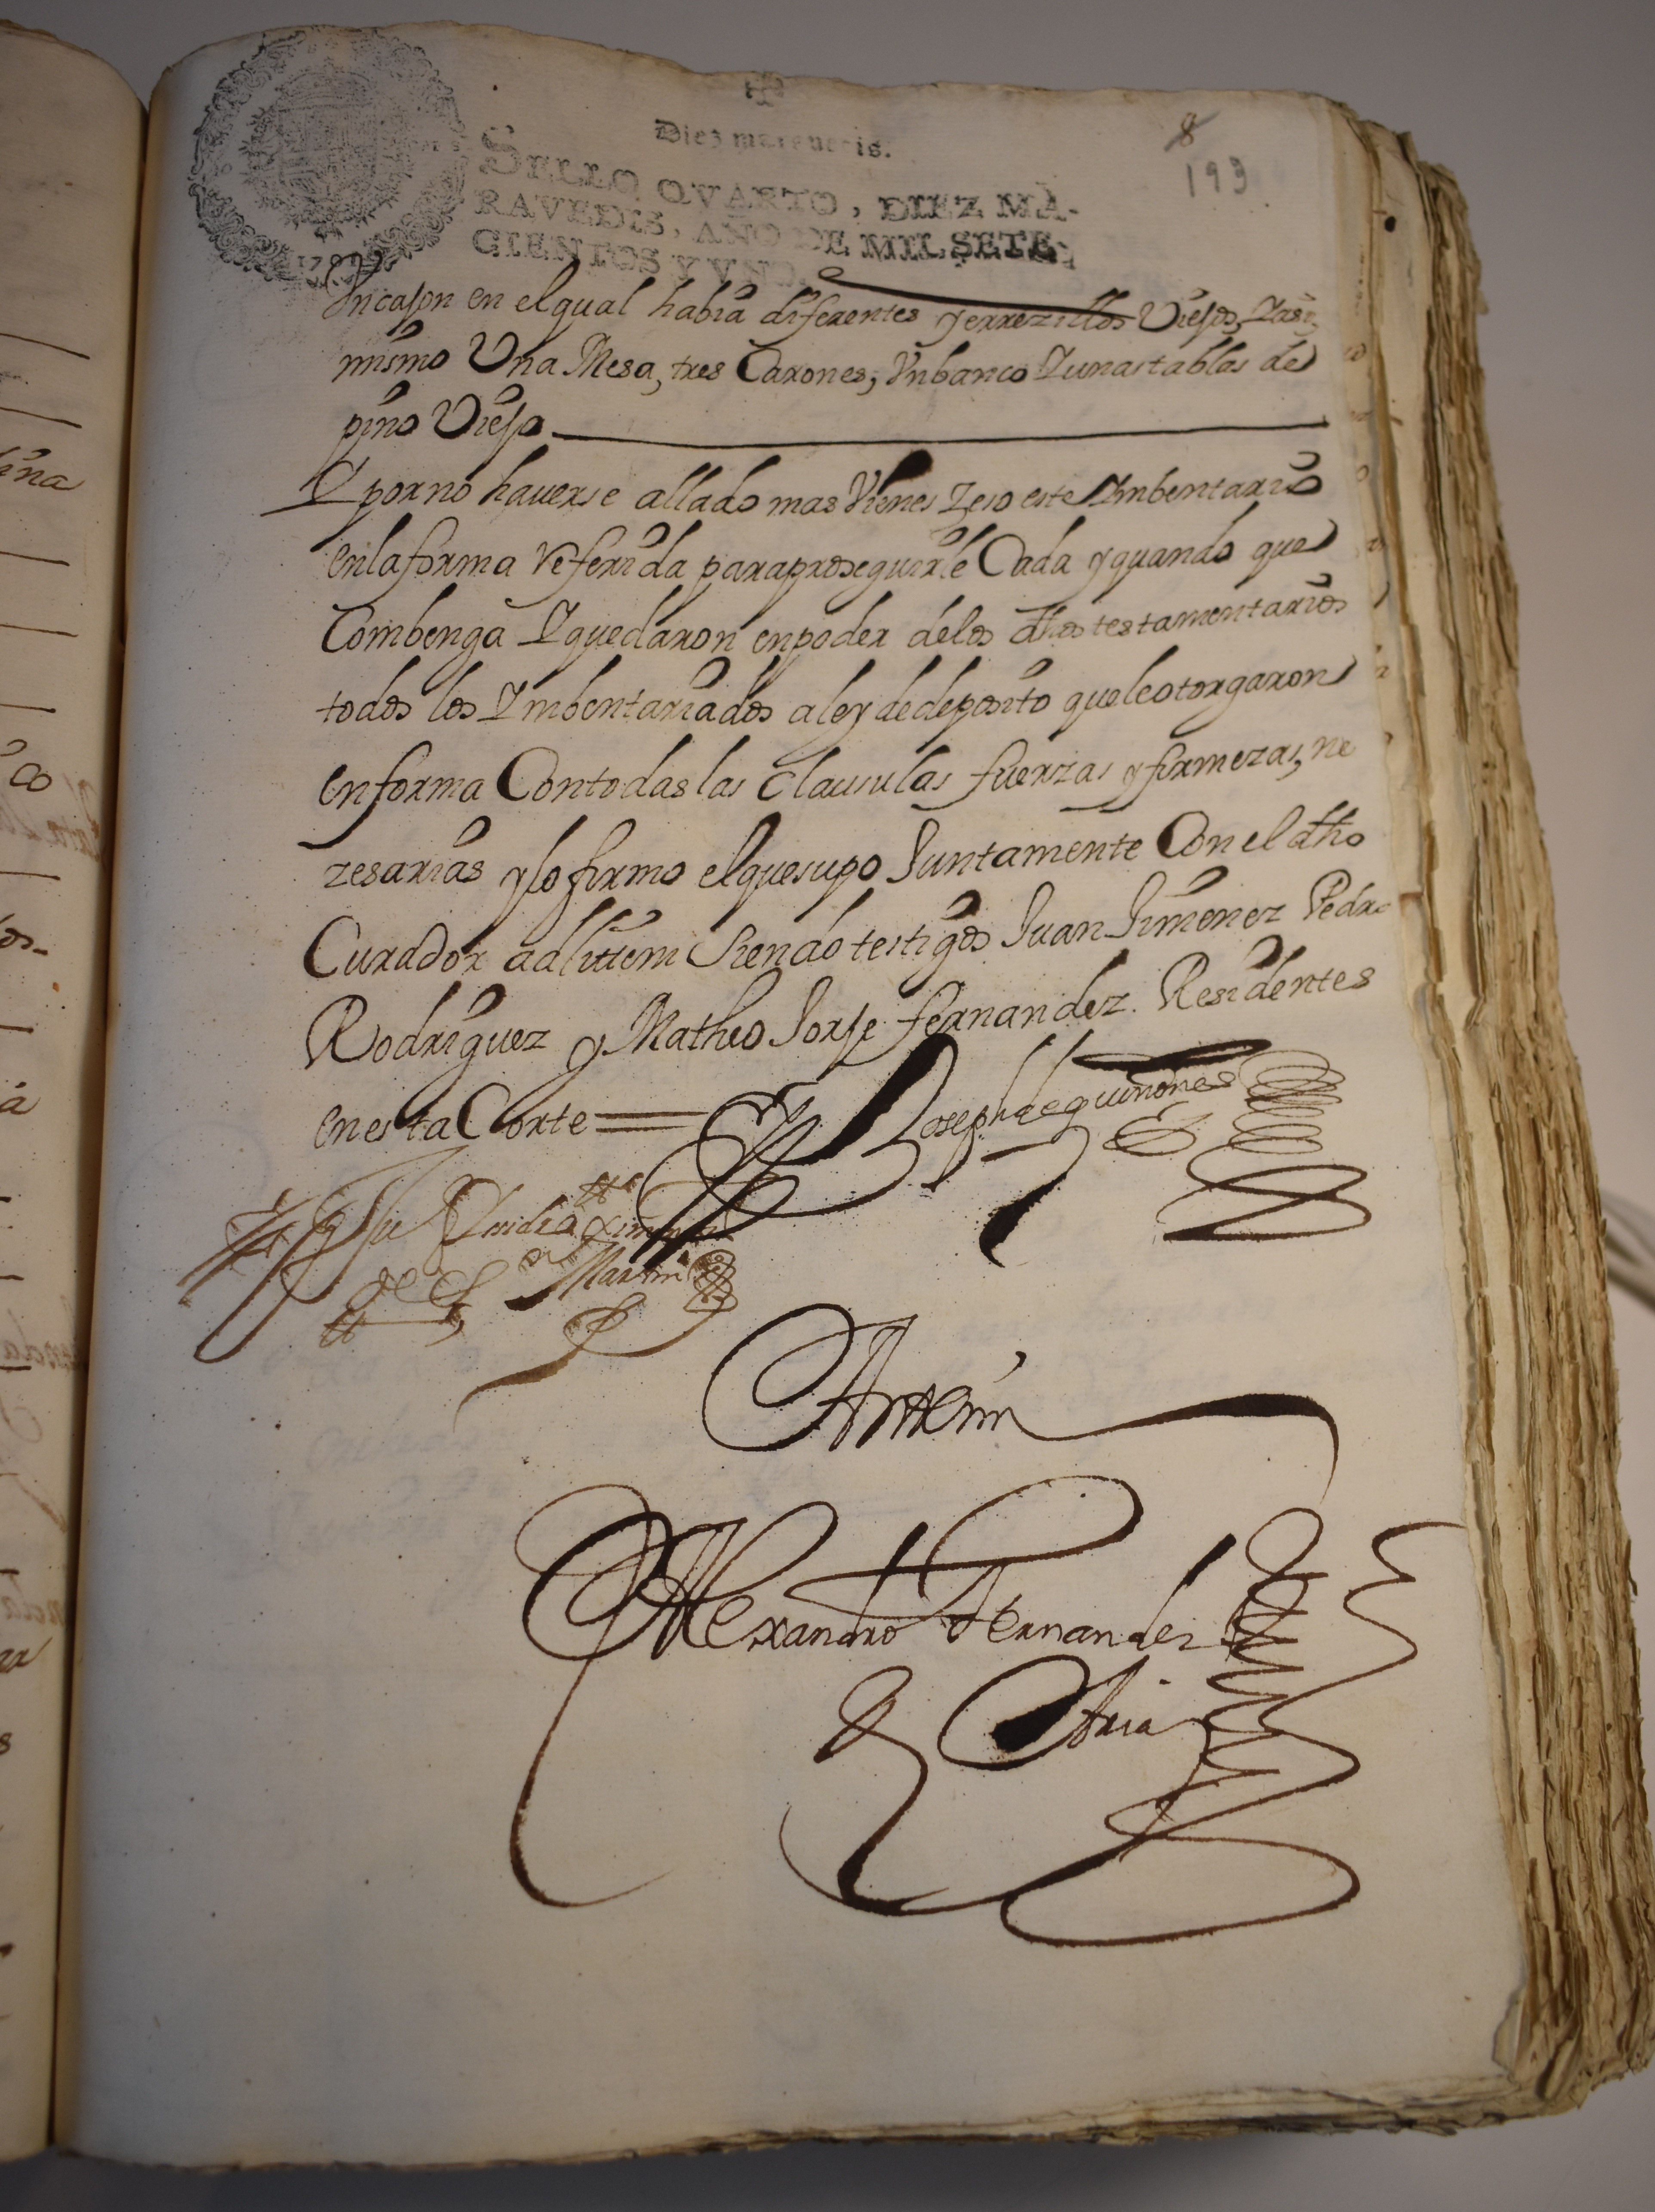 Diez marauedis.
8
193
SELLO QVARTO, DIEZ MA-
RAVEDIS, AÑO DE MIL SETE-
CIENTOS Y VNO.
1701
Vncajon en elqual habia diferentes yerrezillos Viejos, Yasi
mismo Una Mesa, tres Caxones, Vnbanco Yunastablas de
pino Viejo
Y porno hauerse allado mas Vienes Zeso este Ymbentario
enlaforma Referida paraproseguirle Cada yquando que
Combenga Yquedaron enpoder delos dhos testamentarios
todos los Ymbentariados aley dedeposito queleotorgaron
enforma Contodaslas Clausulas fuerzas yfirmezas, ne
zesarias ylo firmo elquesupo Juntamente Con el dho
Curador adlittem Siendo testigos Juan Jimenez Pedro
Rodriguez y Matheo Jorje fernandez. Residentes
enesta Corte
Joseph de quiñones
Martin
Antemi
Alexandro Fernandez
Aria